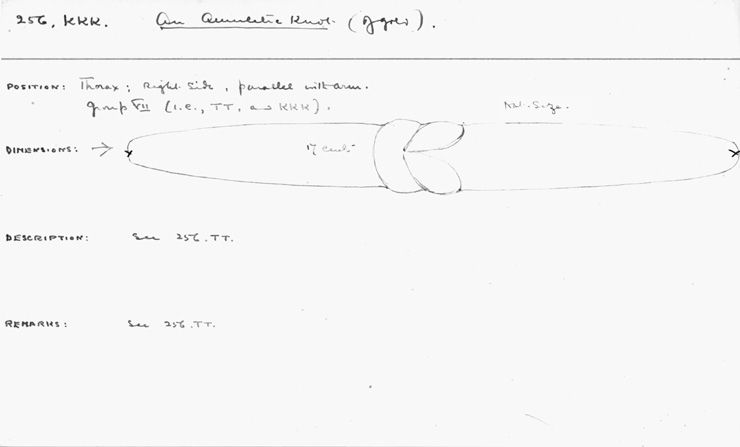 256, KKK. An Amuletic Knot. (of gold).
POSITION: Thorax; Right side, parallel with arm.
group VII (i.e., TT, and KKK).
Nat. Size.
DIMENSIONS: → 17 cent.
DESCRIPTION: See 256.TT.
REMARKS: See 256.TT.